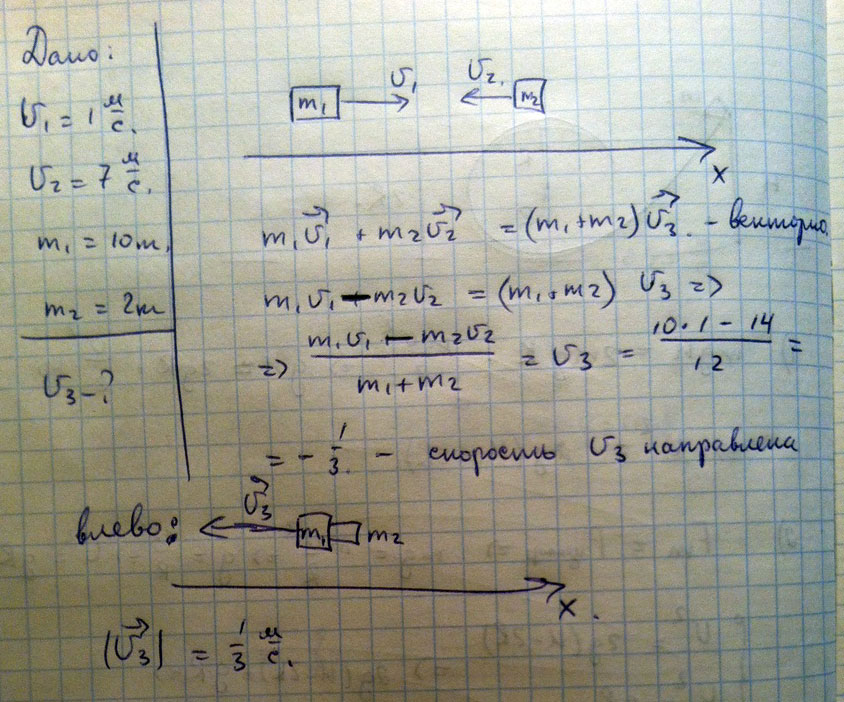 Дано:
υ₁ = 1 м/с.
υ₂ = 7 м/с.
m₁ = 10т.
m₂ = 2т
υ₃ - ?
m₁ υ₁ υ₂. m₂
x
m₁υ⃗₁ + m₂υ⃗₂ = (m₁+m₂) υ⃗₃. - векторно.
m₁υ₁ - m₂υ₂ = (m₁+m₂) υ₃ =>
=> (m₁υ₁ - m₂υ₂)/(m₁+m₂) = υ₃ = (10·1 - 14)/12 =
= - 1/3. - скорость υ₃ направлена
влево: υ⃗₃ m₁ m₂
x.
|υ⃗₃| = 1/3 м/с.